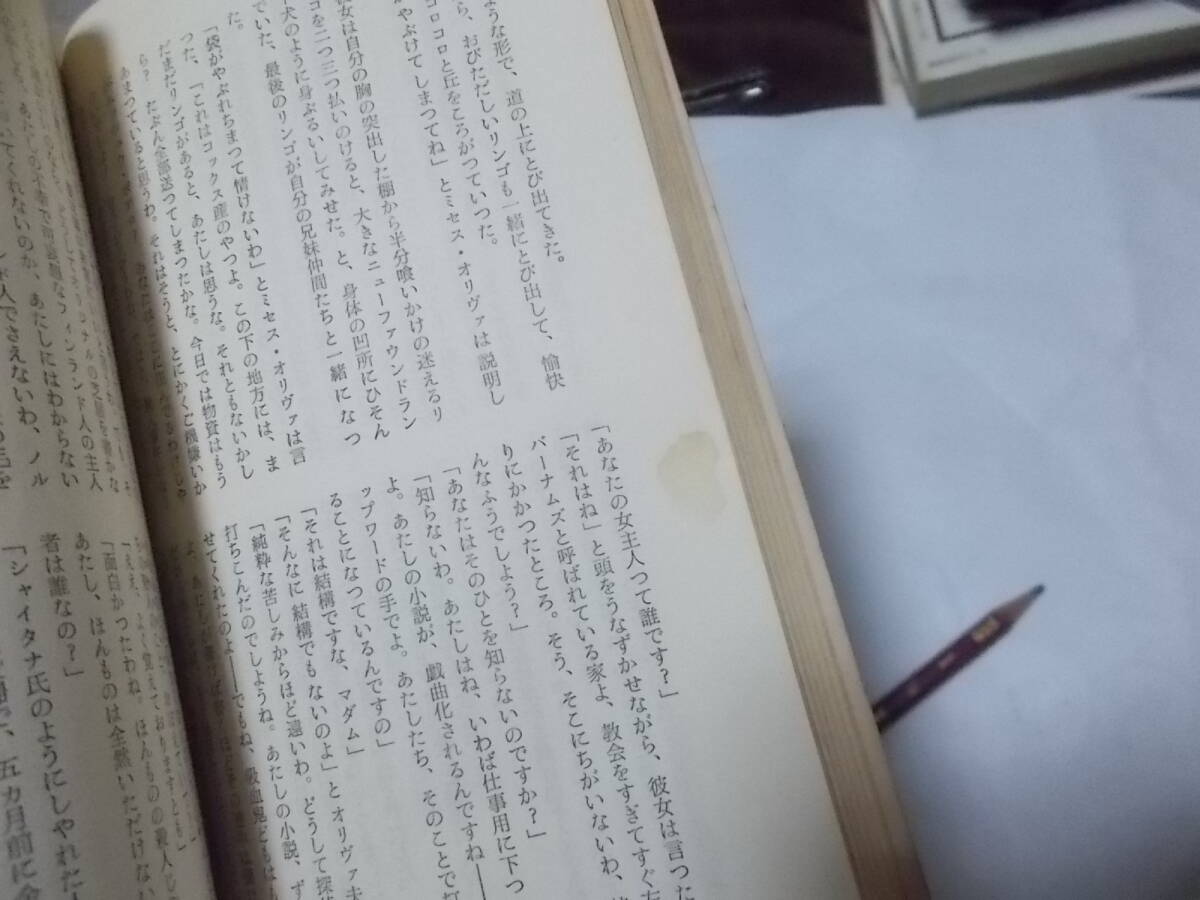 ような形で、道の上にとび出てきた。
おびただしいリンゴも一緒にとび出して、愉快
コロコロと丘をころがつていつた。
がやぶけてしまつてね」とミセス・オリヴァは説明し
彼女は自分の胸の突出した棚から半分喰いかけの迷えるリ
ゴを二つ三つ払いのけると、大きなニューファウンドラン
犬のように身ぶるいしてみせた。と、身体の凹所にひそん
でいた、最後のリンゴが自分の兄妹仲間たちと一緒になつ
た。
「袋がやぶれちまつて情けないわ」とミセス・オリヴァは言
つた、「これはコックス産のやつよ。この下の地方には、ま
だまだリンゴがあると、あたしは思うな。それともないかし
ら？　たぶん全部送つてしまつたかな。今日では物資はもう
あまつていると思うわ。それはそうと、とにかくご機嫌いか
フィンランド人の主人
いてくれないのか、あたしにはわからない
人でさえないわ、ノル
「あなたの女主人つて誰です？」
「それはね」と頭をうなずかせながら、彼女は言つた
バーナムズと呼ばれている家よ、教会をすぎてすぐ右
りにかかつたところ。そう、そこにちがいないわ、
んなふうでしよう？」
「あなたはそのひとを知らないのですか？」
「知らないわ。あたしはね、いわば仕事用に下つ
よ。あたしの小説が、戯曲化されるんですね――
ップワードの手でよ。あたしたち、そのことで打
ることになつているんですの」
「それは結構ですな、マダム」
「そんなに結構でもないのよ」とオリヴァ夫
「純粋な苦しみからほど遠いわ。どうして探偵
打ちこんだのでしようね。あたしの小説、ず
せてくれたのよ――でもね、吸血鬼どもは
「ええ、よく覚えておりますとも」
「面白かつたわね。ほんものの殺人
あたし、ほんものは全然いただけない
「シャイタナ氏のようにしやれた
者は誰なの？」
五カ月前に